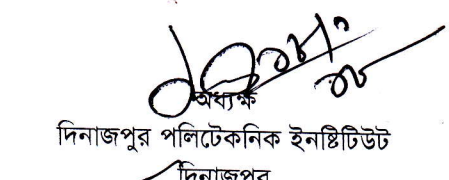 অধ্যক্ষ
দিনাজপুর পলিটেকনিক ইনষ্টিটিউট
দিনাজপুর